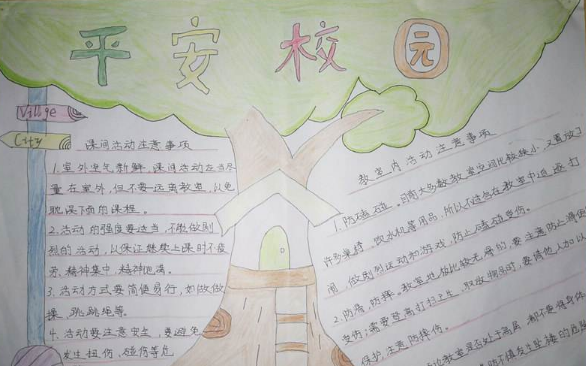 平安校园
Village
City
课间活动注意事项
1.室外空气新鲜,课间活动应当尽
量在室外,但不要远离教室,以免
耽误下面的课程。
2.活动的强度要适当,不做剧
烈的活动,以保证继续上课时不疲
劳,精神集中,精神饱满。
3.活动方式要简便易行,如做做
操,跳跳绳等。
4.活动要注意安全,要避免
发生扭伤,碰伤等危
教室内活动注意事项
1.防磕碰。目前大多数教室空间比较狭小,又置放了
许多桌椅、饮水机等用品,所以不应在教室中追逐打
闹,做剧烈运动和游戏,防止磕碰受伤。
2.防滑,防摔。教室地板比较光滑的,要注意防止滑倒
受伤;需要登高打扫卫生,取放物品时,要请他人加以
保护,注意防摔伤。